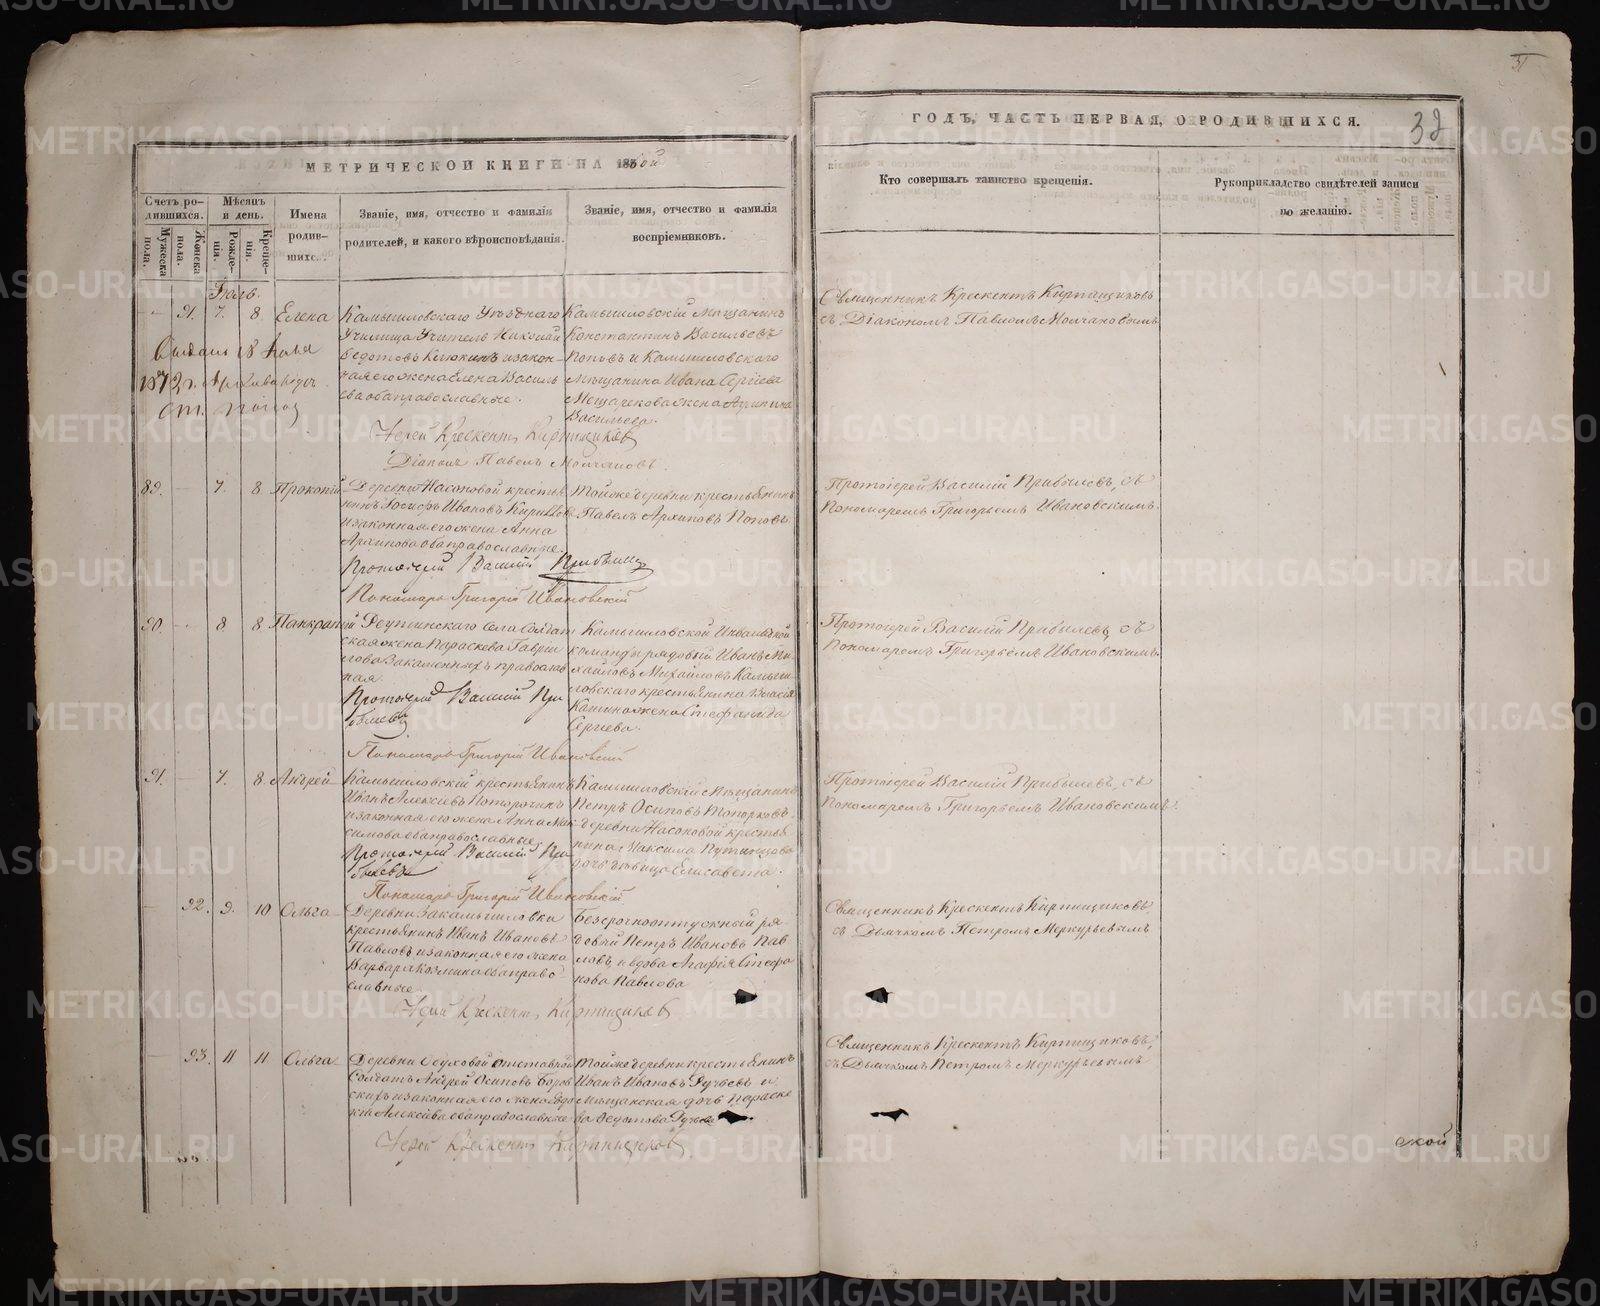 31
МЕТРИЧЕСКОЙ КНИГИ НА 185
ГОДЪ, ЧАСТЬ ПЕРВАЯ, О РОДИВШИХСЯ.
32
Счетъ ро-
дившихся.
Мужеска
пола.
Женска
пола.
Мѣсяцъ
и день.
Рожде-
нія.
Креще-
нія.
Имена
родив-
шихся.
Званіе, имя, отчество и фамилія
родителей, и какого вѣроисповѣданія.
Званіе, имя, отчество и фамилія
воспріемниковъ.
Кто совершалъ таинство крещенія.
Рукоприкладство свидѣтелей записи
по желанію.
Іюль.
91. 7. 8. Елена
Камышловскаго Уѣзднаго
Училища Учитель Николай
Ѳедотовъ Клюкинъ и закон-
ная его жена Елена Василь
ева оба православные.
Камышловскій Мѣщанинъ
Константинъ Васильевъ
Поповъ и Камышловскаго
Мѣщанина Ивана Сергіева
жена Агрипина
Васильева.
Священникъ Крескентъ Киртищиковъ
съ Діакономъ Павломъ Молчановымъ
18 Іюля
1872 г.
Іерей Крескентъ Киртищиковъ
Діаконъ Павелъ Молчановъ.
89. 7. 8. Прокопій
Деревни Насоновой крестья
нинъ Іосифъ Ивановъ
и законная его жена Анна
Архипова оба православные.
Той же деревни крестьянинъ
Павелъ Архиповъ Поповъ
Протоіерей Василій Прибылевъ, съ
Пономаремъ Григорьемъ Ивановскимъ.
Протоіерей Василій Прибылевъ
Пономарь Григорій Ивановскій
90. 8 8. Панкратій
Реутинскаго Села Солдат
ская жена Параскева Гаври
лова Закаменныхъ православ
ная.
Камышловской Инвалидной
команды рядовый Иванъ Ми-
хайловъ Михайловъ Камыш
ловскаго крестьянина Власія
жена Стефанида
Сергіева.
Протоіерей Василій Прибылевъ, съ
Пономаремъ Григорьемъ Ивановскимъ.
Протоіерей Василій При
былевъ
Пономарь Григорій Ивановскій
91. 7. 8. Андрей
Камышловскій крестьянинъ
Иванъ Алексѣевъ Поторочинъ
и законная его жена Анна Мак
симова оба православные.
Камышловскій Мѣщанинъ
Петръ Осиповъ Топорковъ
деревни Насоновой крестья
нина Максима Путинцова
дочь дѣвица Елисавета.
Протоіерей Василій Прибылевъ, съ
Пономаремъ Григорьемъ Ивановскимъ.
Протоіерей Василій При
былевъ
Пономарь Григорій Ивановскій
92. 9. 10 Ольга
Деревни Закамышловки
крестьянинъ Иванъ Ивановъ
Павловъ и законная его жена
Варвара Козмина оба право-
славные.
Безсрочноотпускный ря-
довый Петръ Ивановъ Пав
ловъ и вдова Агафія Стефа
нова Павлова
Священникъ Крескентъ Киртищиковъ,
съ Дьячкомъ Петромъ Меркурьевымъ
Іерей Крескентъ Киртищиковъ
93. 11 11. Ольга
Деревни Обуховой отставной
Солдатъ Андрей Осиповъ Боров
скихъ и законная его жена Евдо
кія Алексѣева оба православные
Той же деревни крестьянинъ
Иванъ Ивановъ Ручьевъ и
Мѣщанская дочь Параске
ва Ѳедотова
Священникъ Крескентъ Киртищиковъ,
съ Дьячкомъ Петромъ Меркурьевымъ
Іерей Крескентъ Киртищиковъ
ской
METRIKI.GASO-URAL.RU